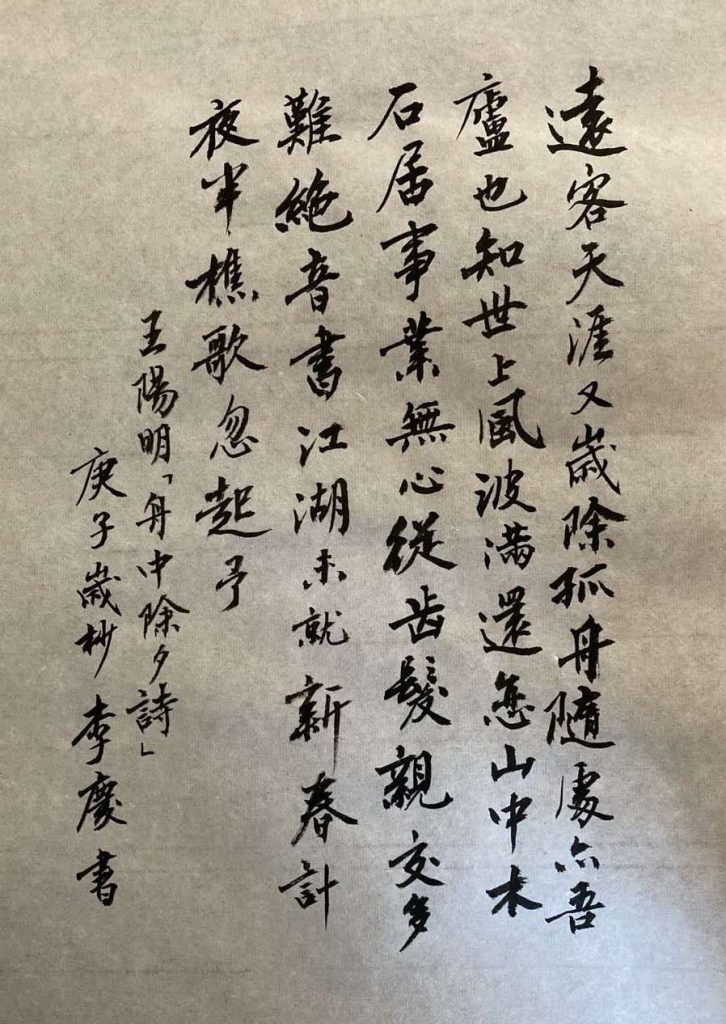 遠客天涯又歲除孤舟隨處亦吾
廬也知世上風波滿還戀山中木
石居事業無心從齿髮親交多
難絶音書江湖未就新春計
夜半樵歌忽起予
王陽明「舟中除夕詩」
庚子歲杪李慶書